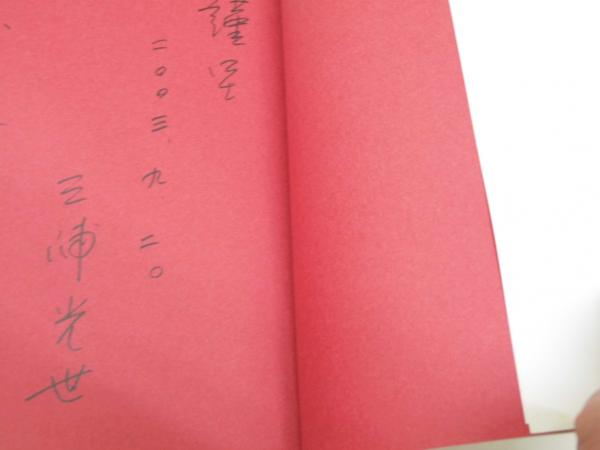 謹呈
二〇〇三、九、二〇
三浦光世